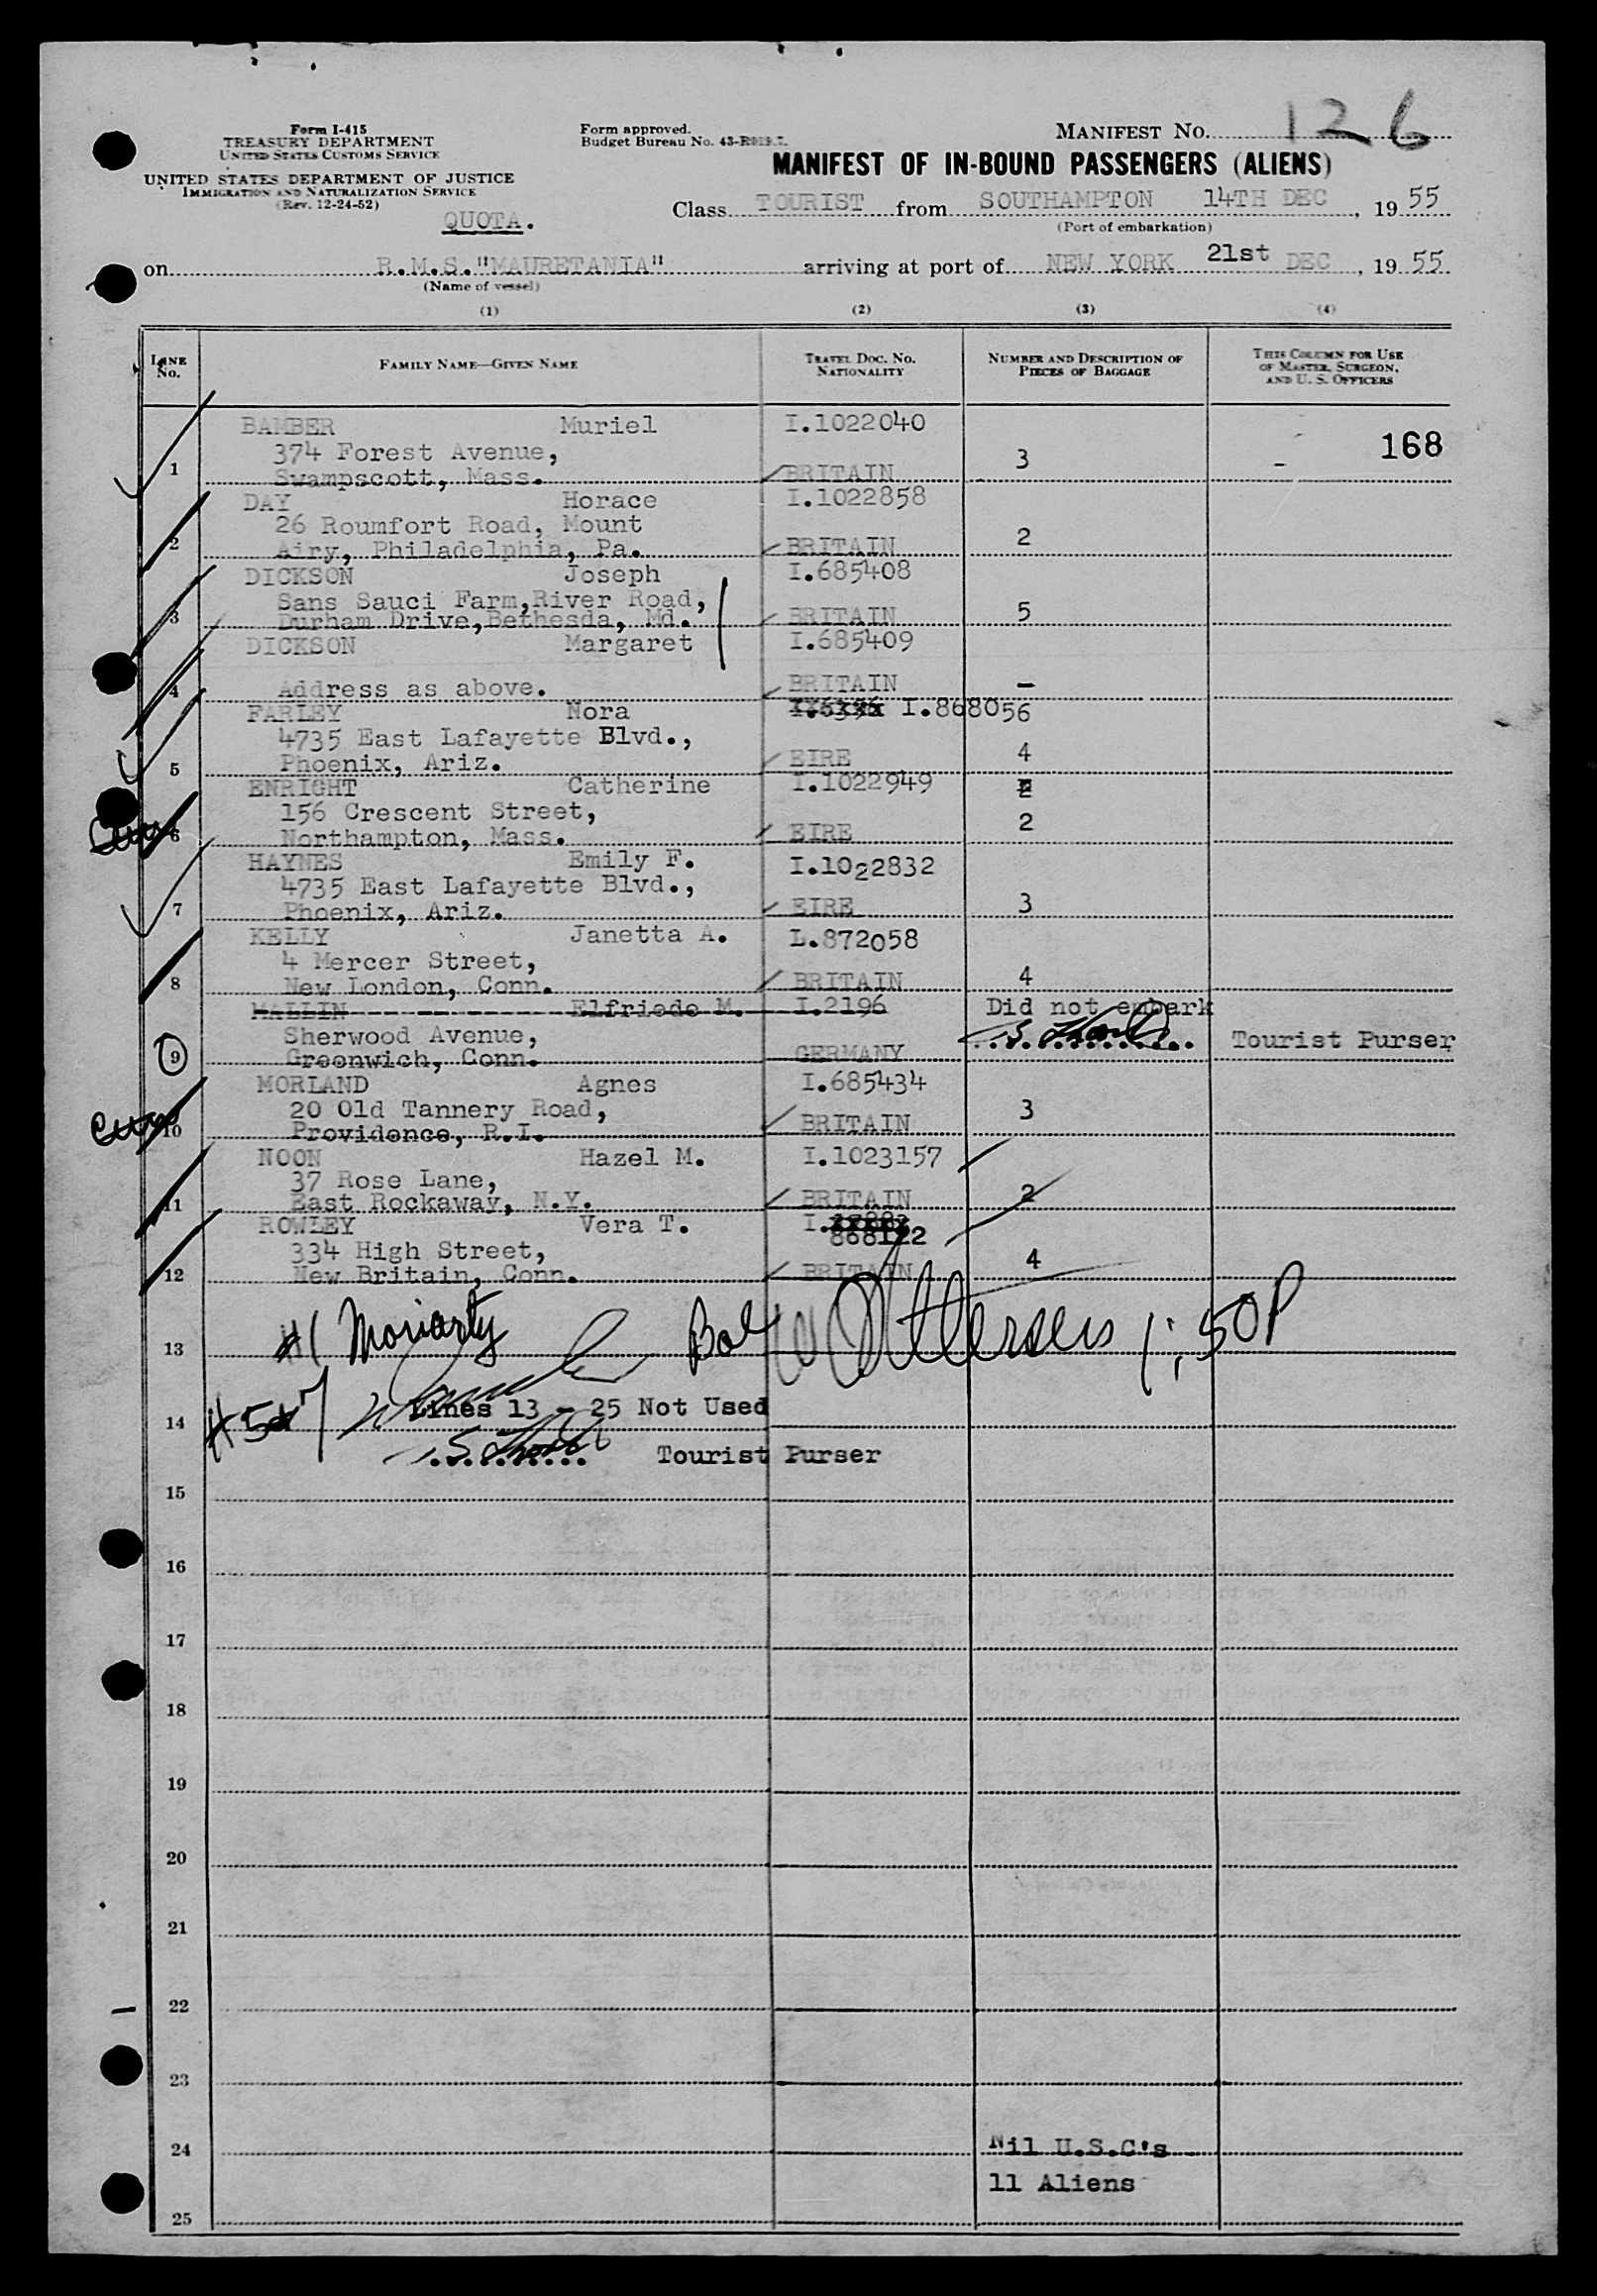 Form I-415
TREASURY DEPARTMENT
UNITED STATES CUSTOMS SERVICE
UNITED STATES DEPARTMENT OF JUSTICE
IMMIGRATION AND NATURALIZATION SERVICE
(Rev. 12-24-52)
QUOTA.
Form approved.
Budget Bureau No.
MANIFEST NO. 126
MANIFEST OF IN-BOUND PASSENGERS (ALIENS)
Class TOURIST from SOUTHAMPTON 14TH DEC, 1955
(Port of embarkation)
on R.M.S."MAURETANIA" arriving at port of NEW YORK 21st DEC, 1955
(Name of vessel)
(1) (2) (3) (4)
LINE No. FAMILY NAME—GIVEN NAME TRAVEL DOC. NO. NATIONALITY NUMBER AND DESCRIPTION OF PIECES OF BAGGAGE THIS COLUMN FOR USE OF MASTER, SURGEON, AND U. S. OFFICERS
BAMBER Muriel I.1022040
374 Forest Avenue, 168
1 Swampscott, Mass. BRITAIN 3 -
DAY Horace I.1022858
26 Roumfort Road, Mount
2 Airy, Philadelphia, Pa. BRITAIN 2
DICKSON Joseph I.685408
Sans Sauci Farm,River Road,
3 Durham Drive,Bethesda, Md. BRITAIN 5
DICKSON Margaret I.685409
4 Address as above. BRITAIN -
FARLEY Nora I.868056
4735 East Lafayette Blvd.,
5 Phoenix, Ariz. EIRE 4
ENRIGHT Catherine I.1022949
156 Crescent Street,
6 Northampton, Mass. EIRE 2
HAYNES Emily F. I.1022832
4735 East Lafayette Blvd.,
7 Phoenix, Ariz. EIRE 3
KELLY Janetta A. L.872058
4 Mercer Street,
8 New London, Conn. BRITAIN 4
MALLIN Elfriede M. I.2196 Did not embark
Sherwood Avenue, Tourist Purser
9 Greenwich, Conn. GERMANY
MORLAND Agnes I.685434
20 Old Tannery Road,
10 Providence, R.I. BRITAIN 3
NOON Hazel M. I.1023157
37 Rose Lane,
11 East Rockaway, N.Y. BRITAIN 2
ROWLEY Vera T. I.868122
334 High Street,
12 New Britain, Conn. BRITAIN 4
13 #1 Moriarty 1:50P
14 Lines 13 - 25 Not Used
Tourist Purser
15
16
17
18
19
20
21
22
23
24 Nil U.S.C's
11 Aliens
25